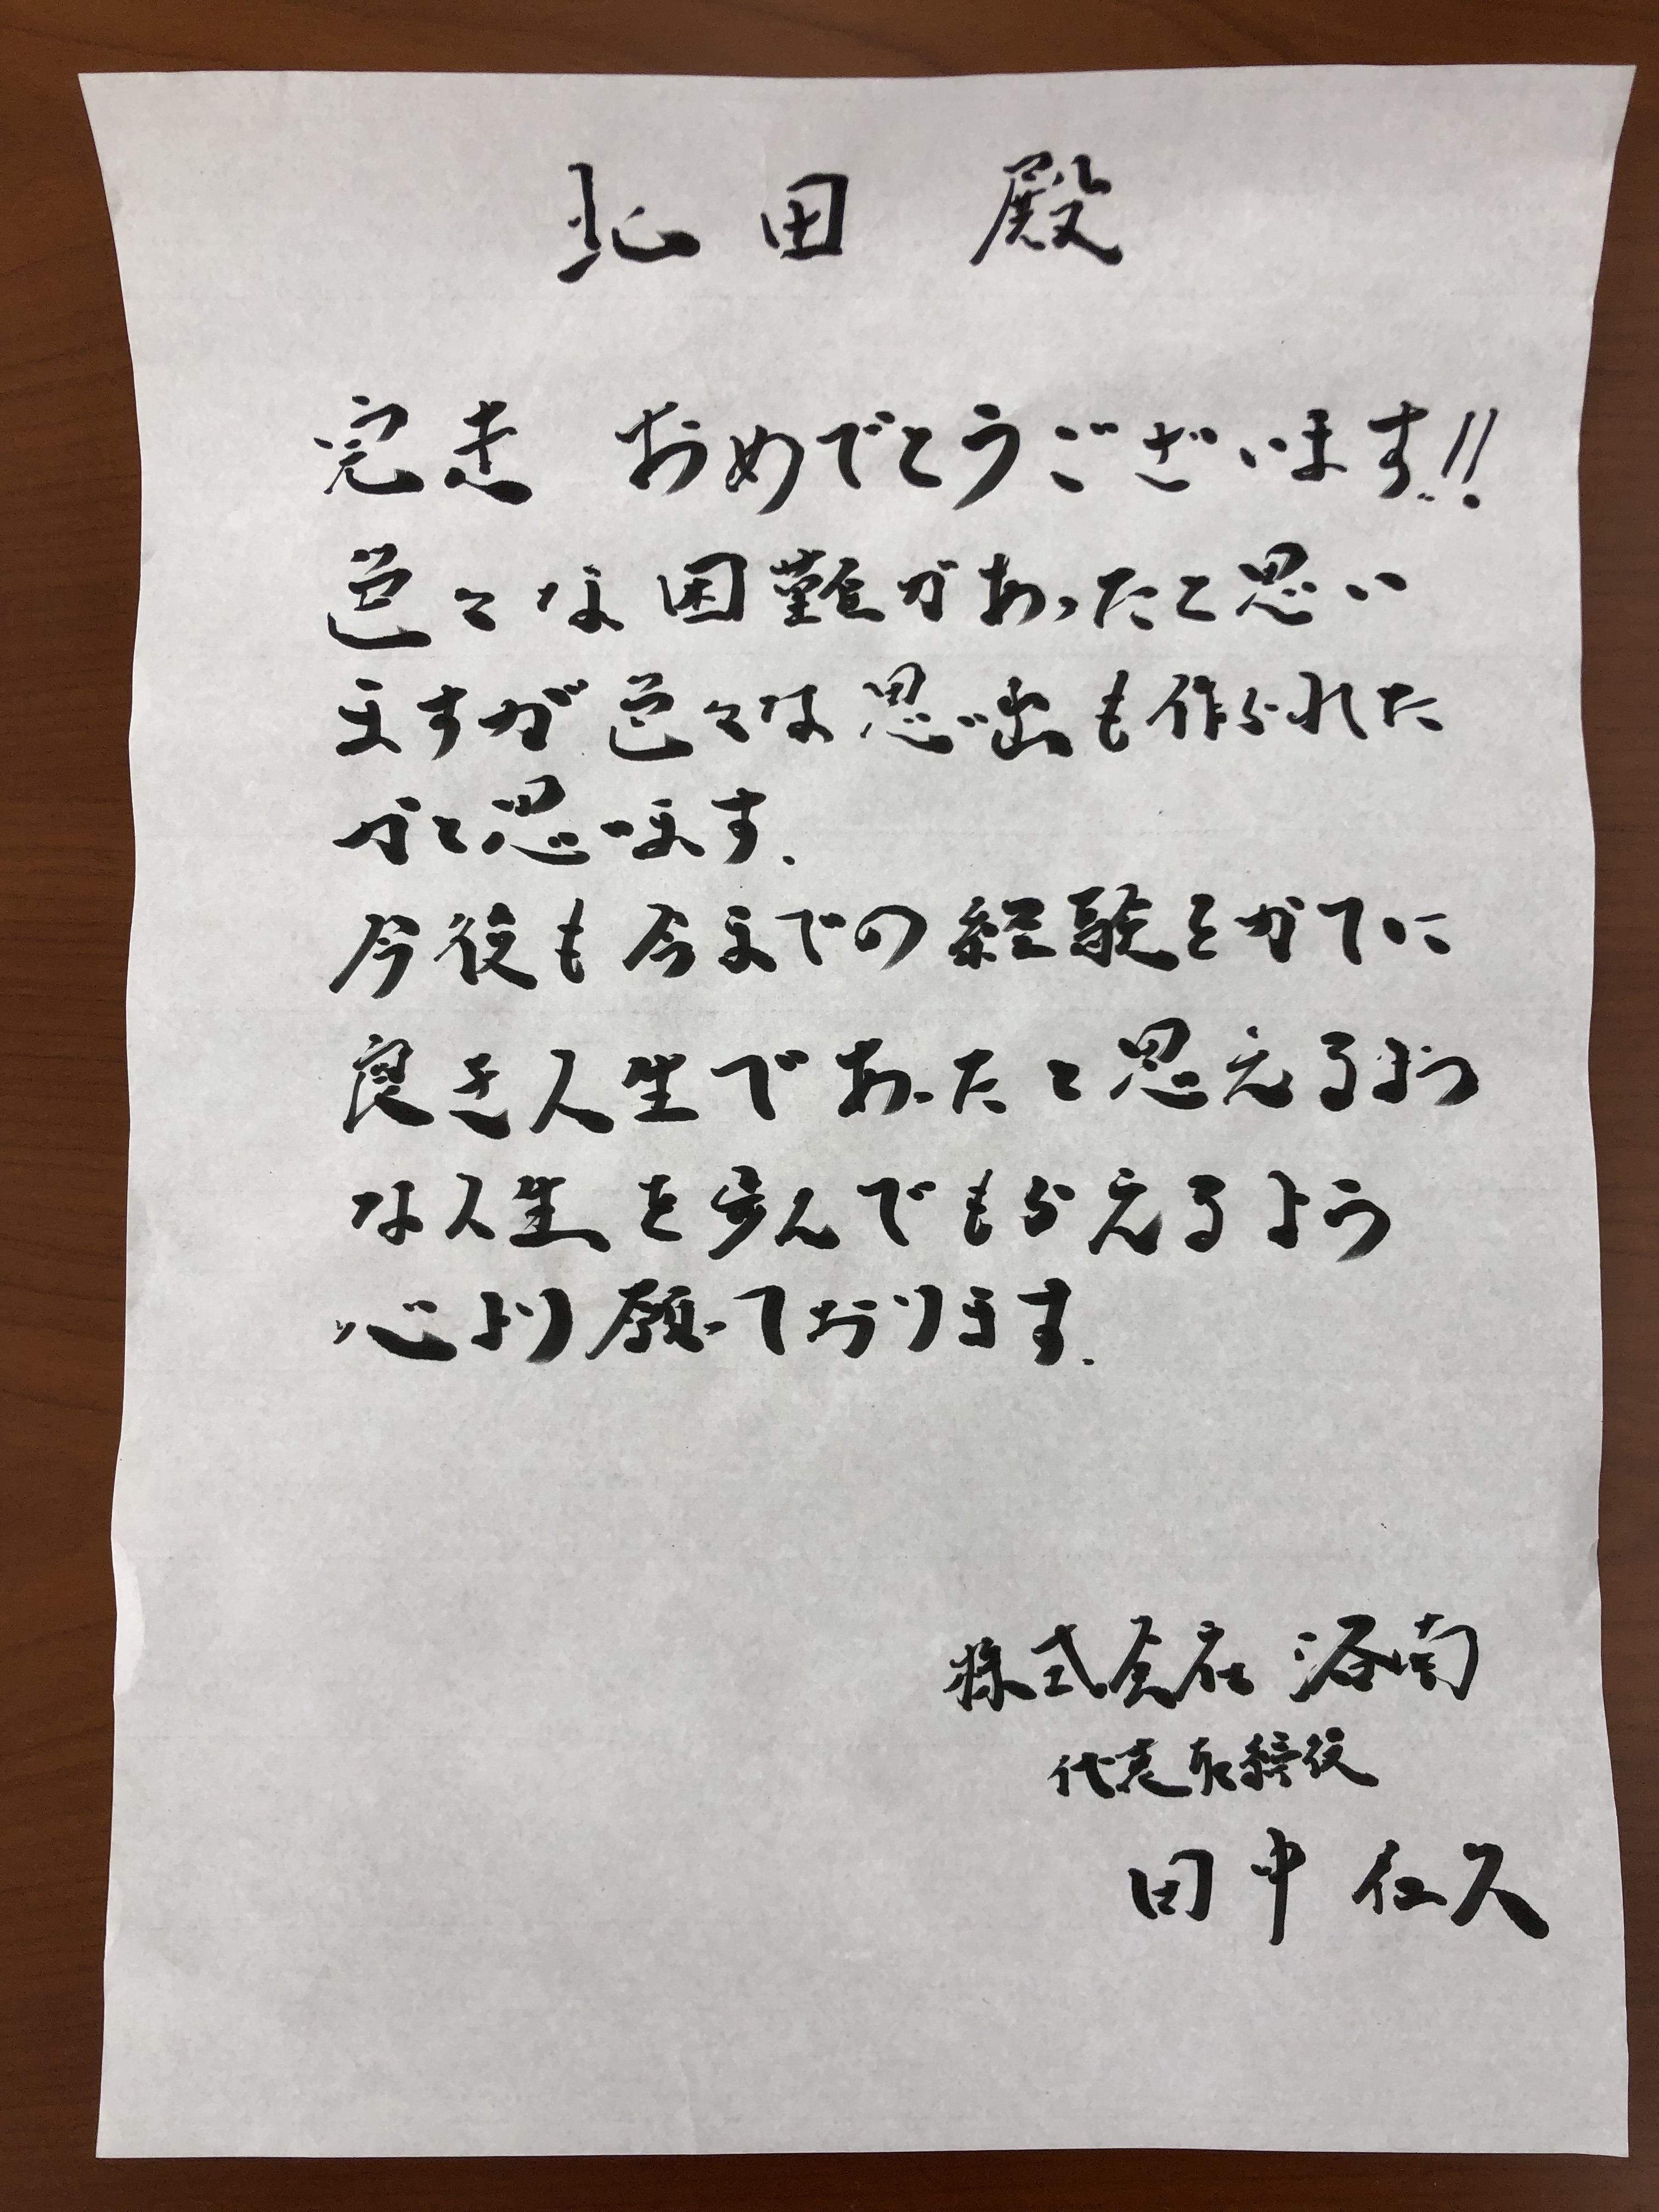 北田 殿
完走 おめでとうございます!!
色々な困難があったと思い
ますが色々な思い出も作られた
かと思います.
今後も今までの経験をかてに
良き人生であったと思えるよう
な人生を歩んでもらえるよう
心より願っております.
株式会社 洛南
代表取締役
田中 仁久